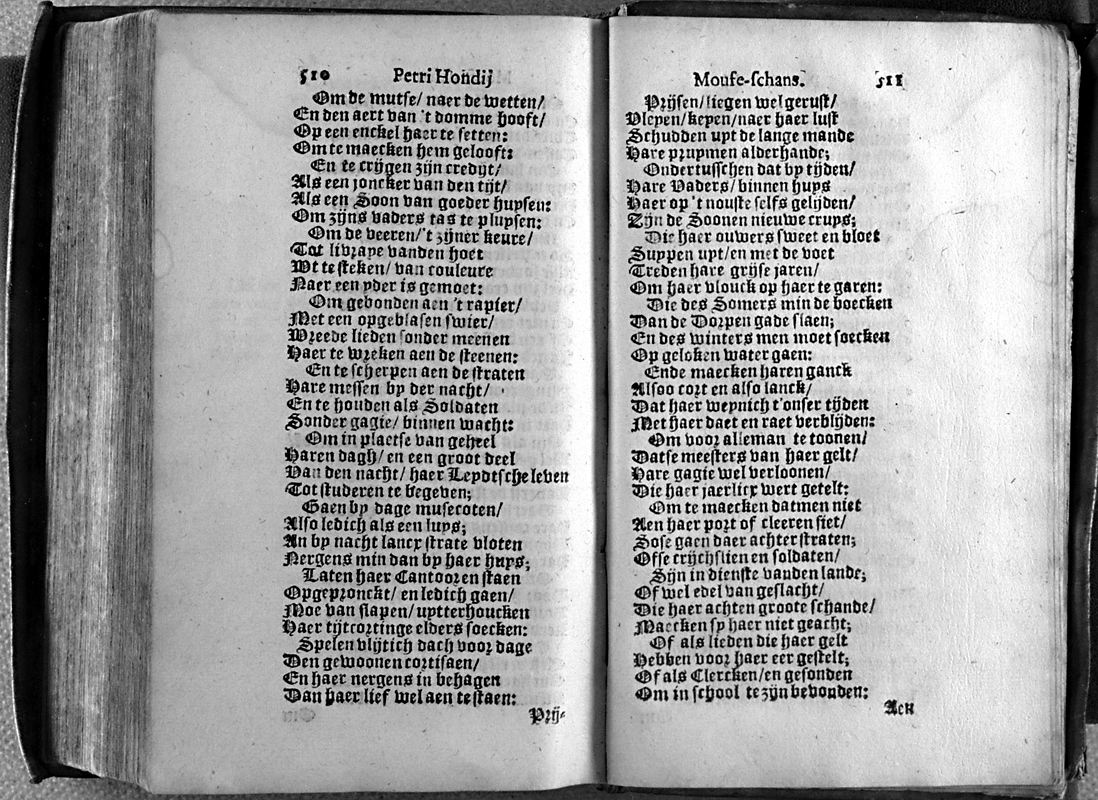 510 Petri Hondij
Om de mutse/ naer de wetten/
En den aert van 't domme hooft/
Op een enckel haer te setten:
Om te maecken hem gelooft:
En te crijgen zijn credijt/
Als een joncker van den tijt/
Als een Soon van goeder huysen:
Om zijns vaders tas te pluysen:
Om de veeren/ 't zijner keure/
Tot livraye vanden hoet
Wt te steken/ van couleure
Naer een yder is gemoet:
Om gebonden aen 't rapier/
Met een opgeblasen swier/
Wreede lieden sonder meenen
Haer te wreken aen de steenen:
En te scherpen aen de straten
Hare messen by der nacht/
En te houden als Soldaten
Sonder gagie/ binnen wacht:
Om in plaetse van geheel
Haren dagh/ en een groot deel
Van den nacht/ haer Leydtsche leven
Tot studeren te begeven;
Gaen by dage musecoten/
Also ledich als een luys;
An by nacht lancx strate vloten
Nergens min dan by haer huys;
Laten haer Cantooren staen
Opgepronckt/ en ledich gaen/
Moe van slapen/ uytterhoucken
Haer tijtcortinge elders soecken:
Spelen vlijtich dach voor dage
Den gewoonen cortisaen/
En haer nergens in behagen
Dan haer lief wel aen te staen:
Prij-
Mouse-schans. 511
Prijsen/ liegen wel gerust/
Vleyen/ keyen/ naer haer lust
Schudden uyt de lange mande
Hare pruymen alderhande;
Ondertusschen dat by tijden/
Hare Vaders/ binnen huys
Haer op 't nouste selfs gelijden/
Zijn de Soonen nieuwe cruys;
Die haer ouwers sweet en bloet
Suppen uyt/ en met de voet
Treden hare grijse jaren/
Om haer vlouck op haer te garen:
Die des Somers min de boecken
Dan de Dorpen gade slaen;
En des winters men moet soecken
Op geloken water gaen:
Ende maecken haren ganck
Alsoo cort en also lanck/
Dat haer weynich t'onser tijden
Met haer daet en raet verblijden:
Om voor alleman te toonen/
Datse meesters van haer gelt/
Hare gagie wel verloonen/
Die haer jaerlicx wert getelt:
Om te maecken datmen niet
Aen haer port of cleeren siet/
Sose gaen daer achter straten;
Ofse crijchslien en soldaten/
Sijn in dienste vanden lande;
Of wel edel van geslacht/
Die haer achten groote schande/
Maecken sy haer niet geacht;
Of als lieden die haer gelt
Hebben voor haer eer gestelt;
Of als Clercken/ en gesonden
Om in school te zijn bevonden:
Aen